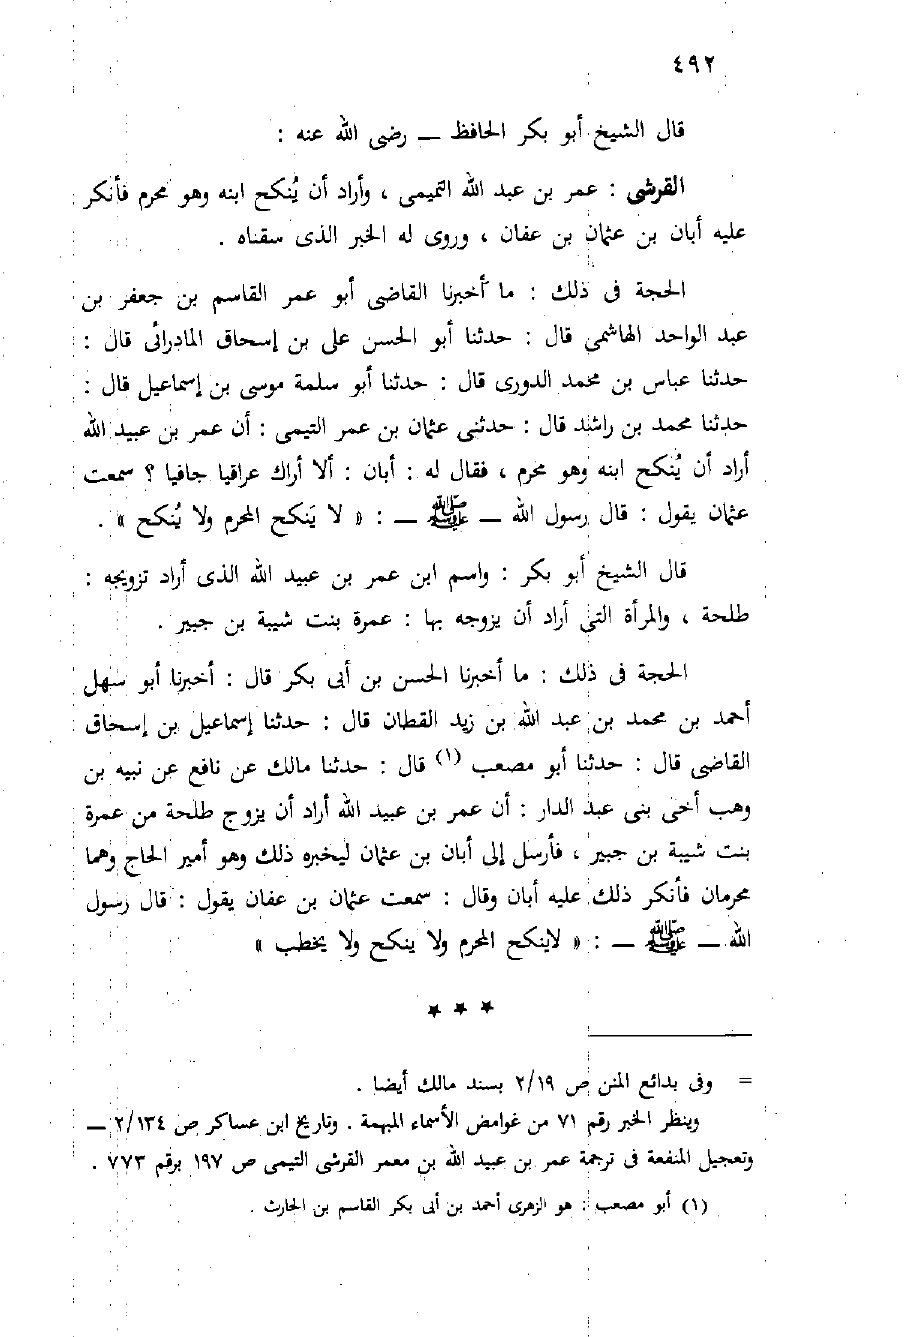 ٤٩٢
قال الشيخ أبو بكر الحافظ ــ رضى الله عنه :
القرشى : عمر بن عبد الله التميمى ، وأراد أن يُنكح ابنه وهو محرم فأنكر
عليه أبان بن عثمان بن عفان ، وروى له الخبر الذى سقناه .
الحجة فى ذلك : ما أخبرنا القاضى أبو عمر القاسم بن جعفر بن
عبد الواحد الهاشمى قال : حدثنا أبو الحسن على بن إسحاق المادرائى قال :
حدثنا عباس بن محمد الدورى قال : حدثنا أبو سلمة موسى بن إسماعيل قال :
حدثنا محمد بن راشد قال : حدثنى عثمان بن عمر التيمى : أن عمر بن عبيد الله
أراد أن يُنكح ابنه وهو محرم ، فقال له : أبان : ألا أراك عراقيا جافيا ؟ سمعت
عثمان يقول : قال رسول الله ــ ﷺ ــ : « لا يَنكح المحرم ولا يُنكح » .
قال الشيخ أبو بكر : واسم ابن عمر بن عبيد الله الذى أراد تزويجه :
طلحة ، والمرأة التى أراد أن يزوجه بها : عمرة بنت شيبة بن جبير .
الحجة فى ذلك : ما أخبرنا الحسن بن أبى بكر قال : أخبرنا أبو سهل
أحمد بن محمد بن عبد الله بن زيد القطان قال : حدثنا إسماعيل بن إسحاق
القاضى قال : حدثنا أبو مصعب (١) قال : حدثنا مالك عن نافع عن نبيه بن
وهب أخى بنى عبد الدار : أن عمر بن عبيد الله أراد أن يزوج طلحة من عمرة
بنت شيبة بن جبير ، فأرسل إلى أبان بن عثمان ليخبره ذلك وهو أمير الحاج وهما
محرمان فأنكر ذلك عليه أبان وقال : سمعت عثمان بن عفان يقول : قال رسول
الله ــ ﷺ ــ : « لاينكح المحرم ولا ينكح ولا يخطب »
★ ★ ★
= وفى بدائع المنن ص ٢/١٩ بسند مالك أيضا .
وينظر الخبر رقم ٧١ من غوامض الأسماء المبهمة . وتاريخ ابن عساكر ص ٢/١٣٤ ــ
وتعجيل المنفعة فى ترجمة عمر بن عبيد الله بن معمر القرشى التيمى ص ١٩٧ برقم ٧٧٣ .
(١) أبو مصعب : هو الزهرى أحمد بن أبى بكر القاسم بن الحارث .